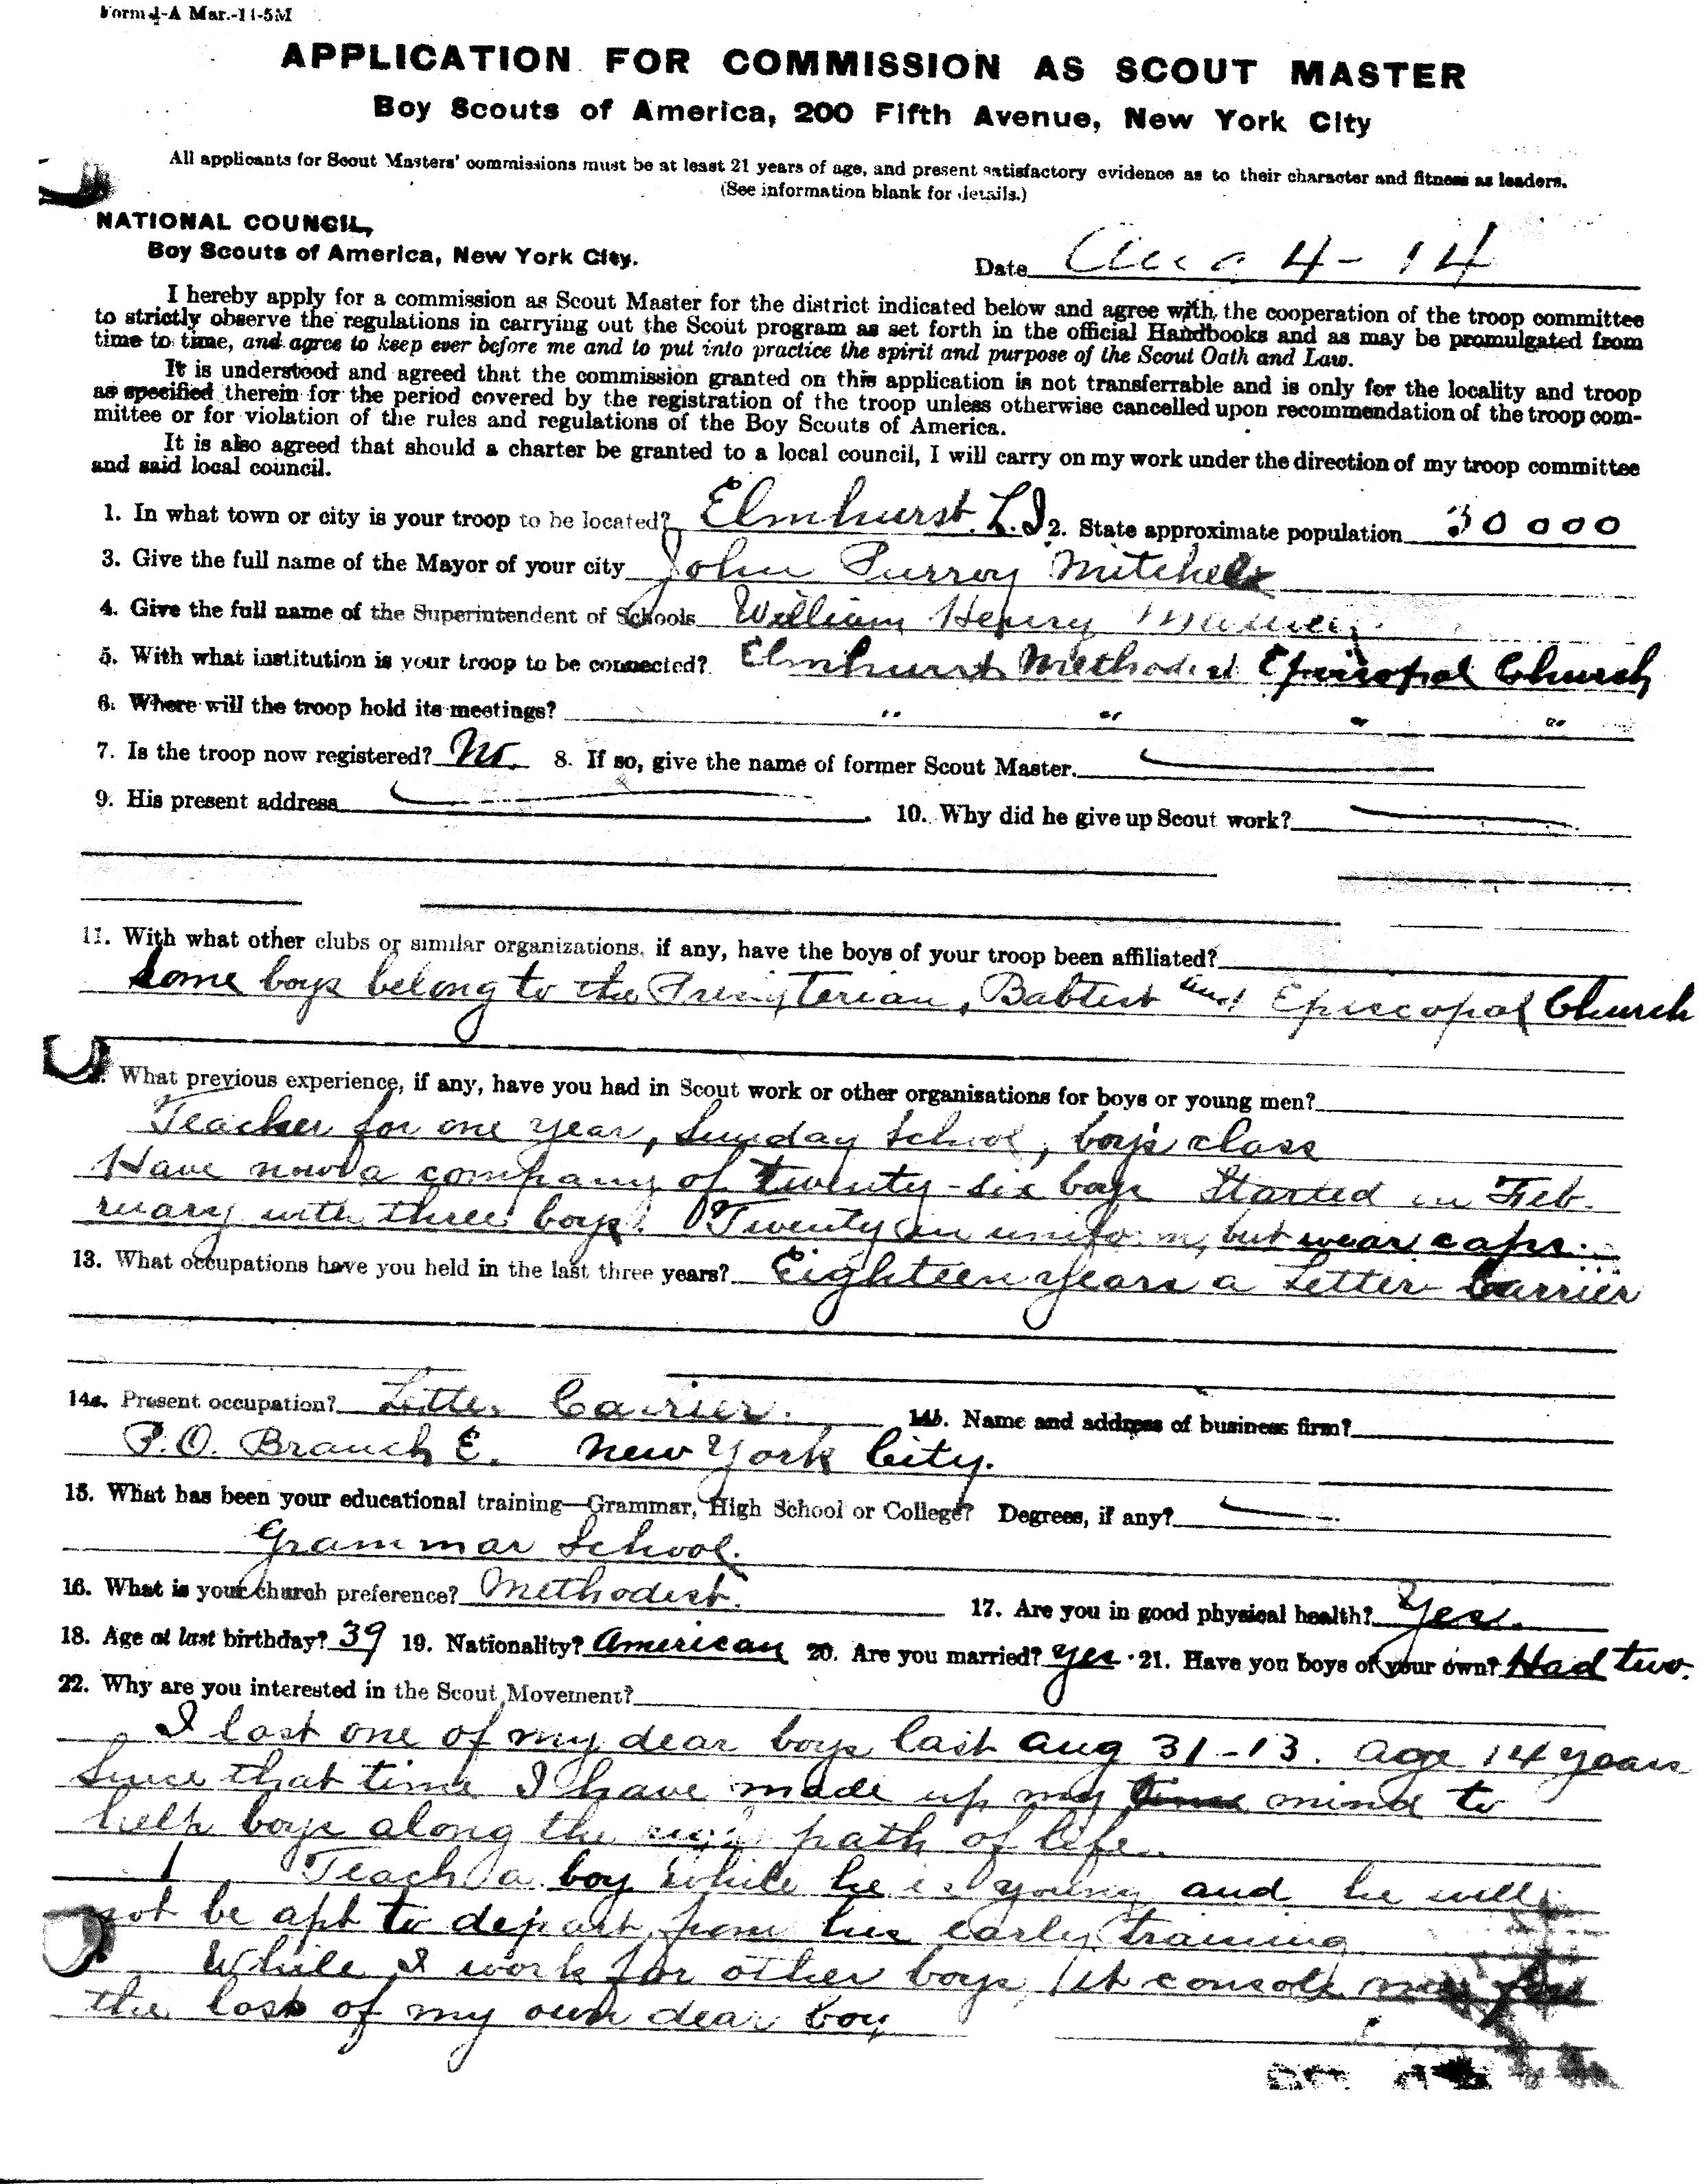 Form 1-A Mar.-11-5M
APPLICATION FOR COMMISSION AS SCOUT MASTER
Boy Scouts of America, 200 Fifth Avenue, New York City
All applicants for Scout Masters' commissions must be at least 21 years of age, and present satisfactory evidence as to their character and fitness as leaders.
(See information blank for details.)
NATIONAL COUNCIL,
Boy Scouts of America, New York City.
Date Aug 4-14
I hereby apply for a commission as Scout Master for the district indicated below and agree with, the cooperation of the troop committee
to strictly observe the regulations in carrying out the Scout program as set forth in the official Handbooks and as may be promulgated from
time to time, and agree to keep ever before me and to put into practice the spirit and purpose of the Scout Oath and Law.
It is understood and agreed that the commission granted on this application is not transferrable and is only for the locality and troop
as specified therein for the period covered by the registration of the troop unless otherwise cancelled upon recommendation of the troop com-
mittee or for violation of the rules and regulations of the Boy Scouts of America.
It is also agreed that should a charter be granted to a local council, I will carry on my work under the direction of my troop committee
and said local council.
1. In what town or city is your troop to be located? Elmhurst. L.I. 2. State approximate population 30000
3. Give the full name of the Mayor of your city John Purroy Mitchel
4. Give the full name of the Superintendent of Schools William Henry
5. With what institution is your troop to be connected? Elmhurst Methodist Episcopal Church
6. Where will the troop hold its meetings? " " " "
7. Is the troop now registered? No. 8. If so, give the name of former Scout Master.
9. His present address 10. Why did he give up Scout work?
11. With what other clubs or similar organizations, if any, have the boys of your troop been affiliated?
Some boys belong to the Presbyterian, Babtist and Episcopal Church
What previous experience, if any, have you had in Scout work or other organizations for boys or young men?
Teacher for one year, Sunday School, boy's class
Have now a company of twenty-six boys Started in Feb-
ruary with three boys. Twenty in uniform, but wear caps.
13. What occupations have you held in the last three years? Eighteen years a Letter Carrier
14a. Present occupation? Letter Carrier. 14b. Name and address of business firm?
P.O. Branch E. New York City.
15. What has been your educational training—Grammar, High School or College? Degrees, if any?
Grammar School.
16. What is your church preference? Methodist. 17. Are you in good physical health? Yes.
18. Age at last birthday? 39 19. Nationality? American 20. Are you married? Yes 21. Have you boys of your own? Had two.
22. Why are you interested in the Scout Movement?
I lost one of my dear boys last Aug 31-13. age 14 years
Since that time I have made up my time mind to
help boys along the right path of life.
Teach a boy while he is young and he will
not be apt to depart from his early training
While I work for other boys, it console me for
the loss of my own dear boy